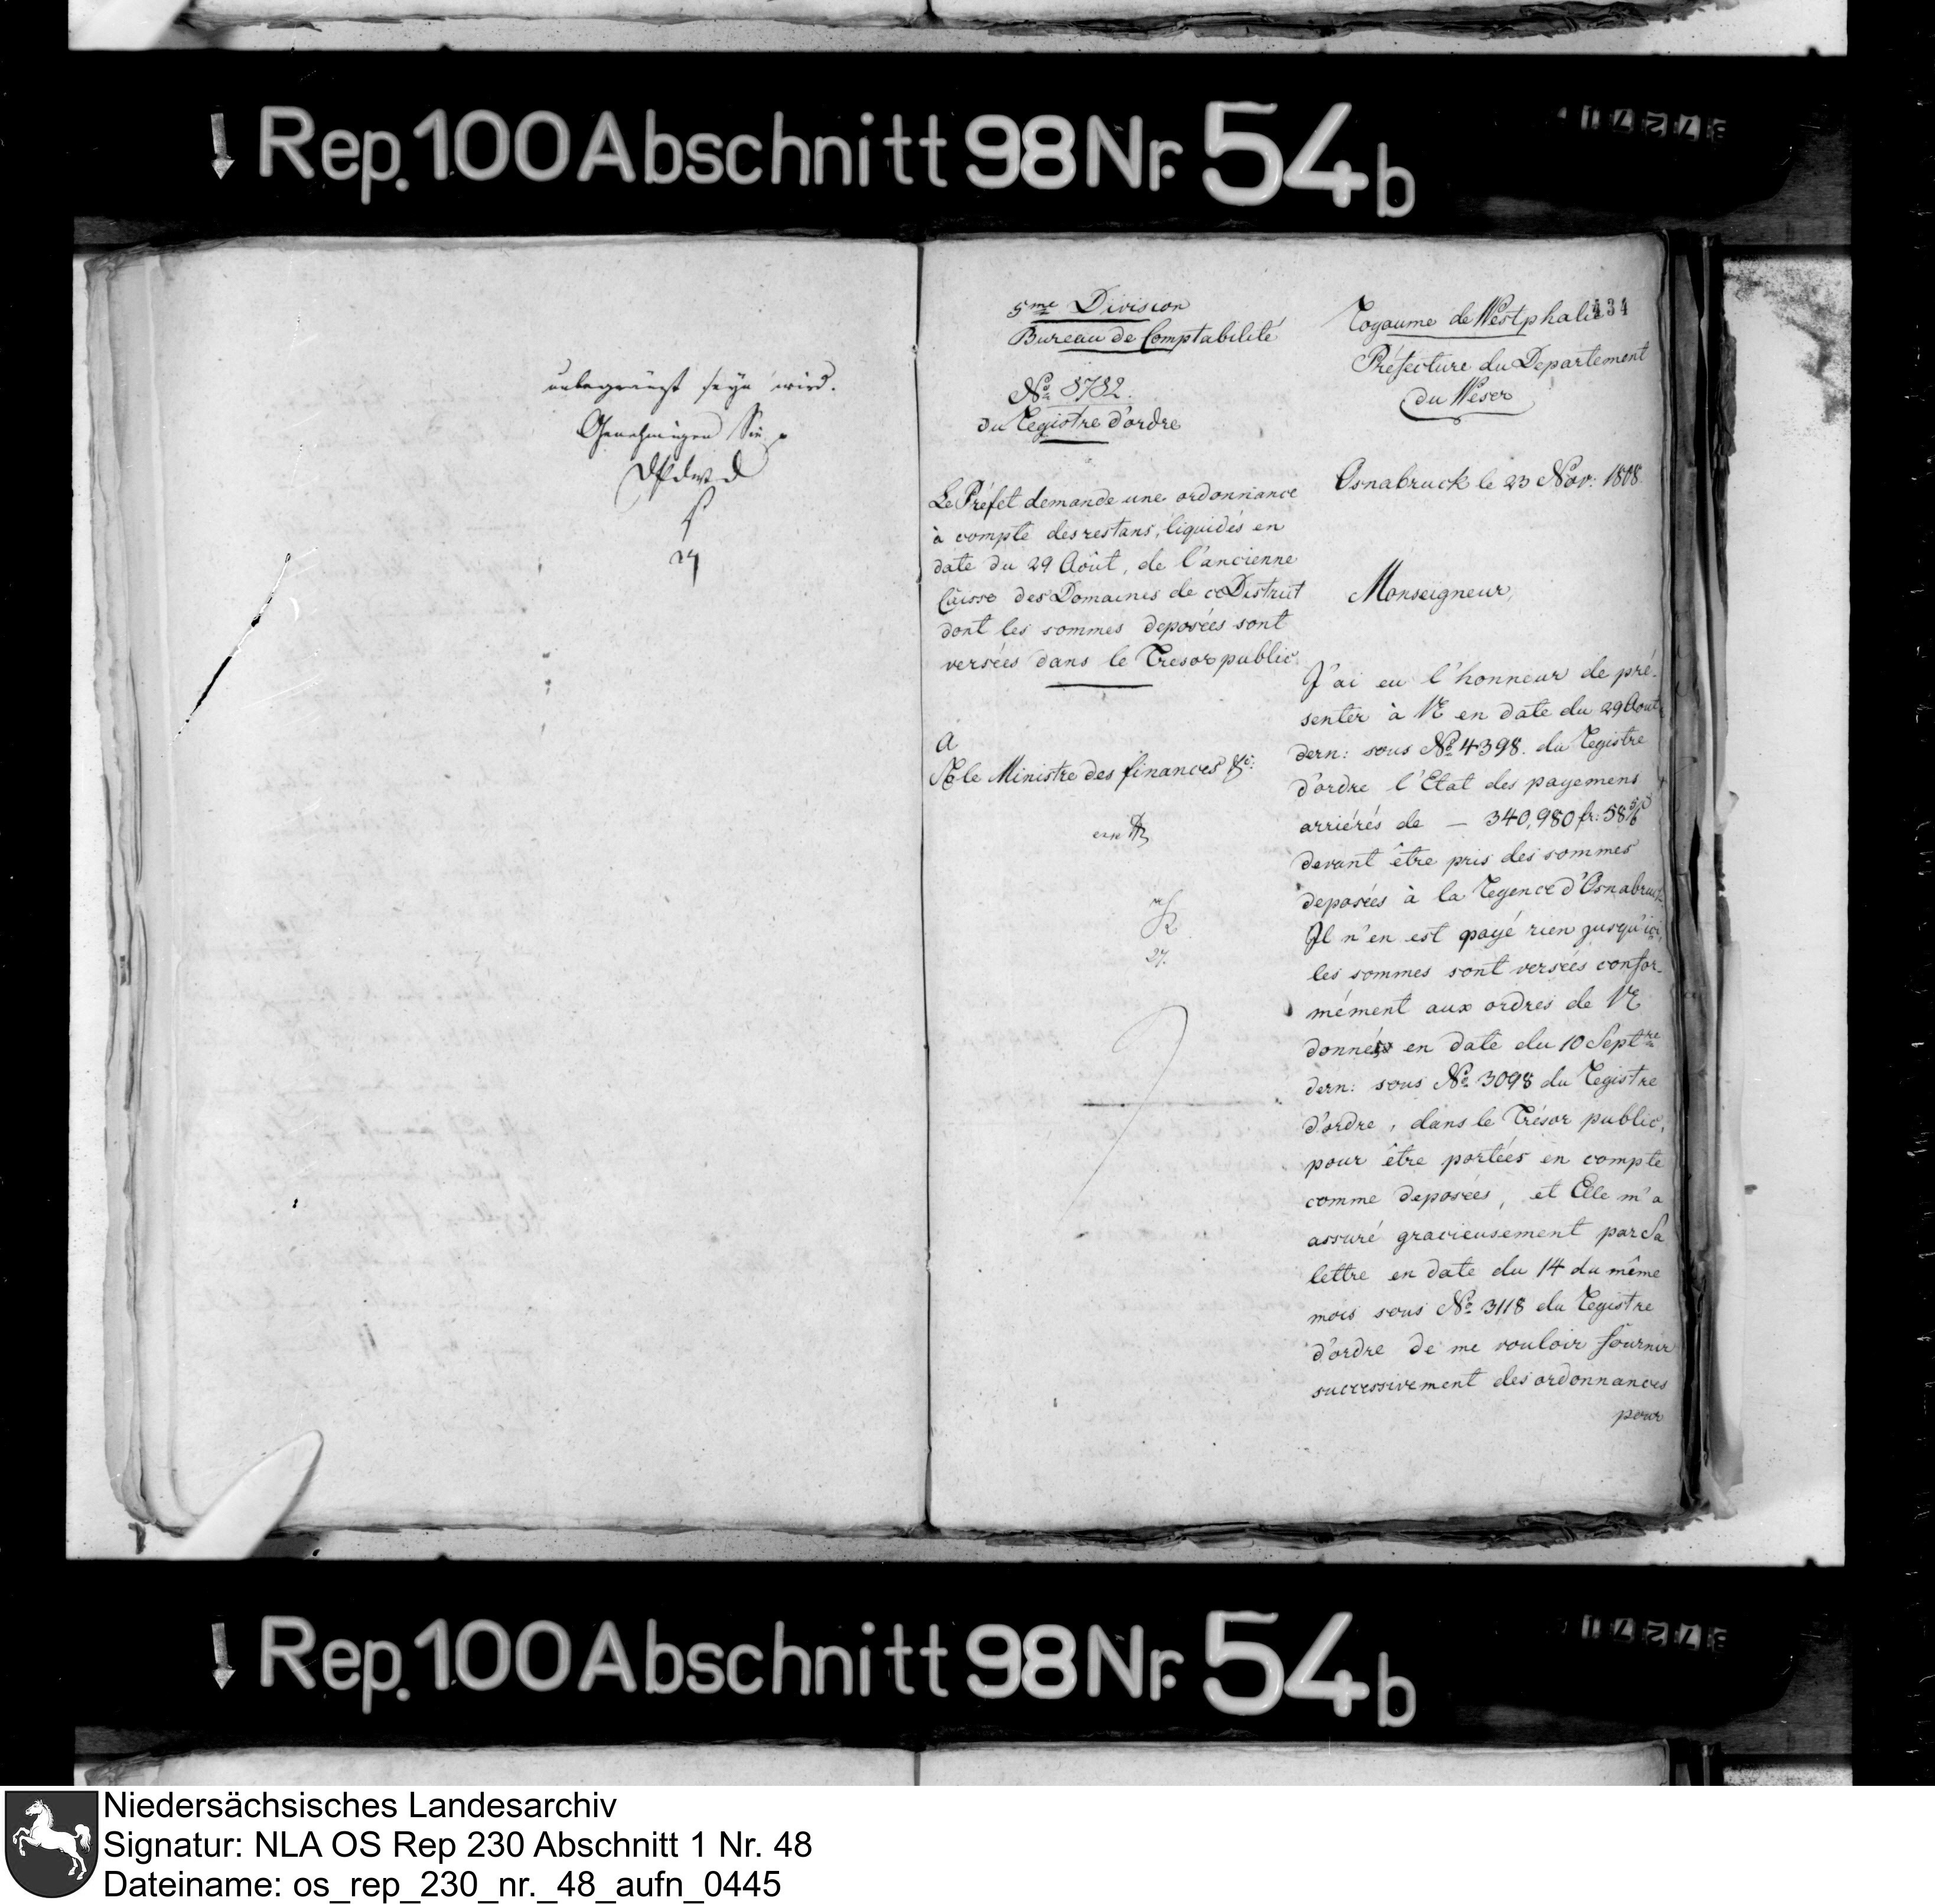 Rep. 100 Abschnitt 98 Nr. 54b
unbegränzt seyn wird.
Genehmigen Sie
5me Division
Bureau de Comptabilité
No 8782.
du Registre d'ordre
Le Préfet demande une ordonnance
à compte des restans, liquidés en
date du 29 Août, de l'ancienne
Caisse des Domaines de ce District
dont les sommes deposées sont
versées dans le Trésor public
A
SE le Ministre des finances &c:
27.
434
Royaume de Westphalie
Préfecture du Departement
du Weser
Osnabruck le 23 Nov: 1808
Monseigneur,
J'ai eu l'honneur de pré-
senter à VE en date du 29 Aout
dern: sous No 4398. du Registre
d'ordre l'Etat des payemens
arriérés de — 340,980 fr: 58
devant être pris des sommes
deposées à la Regence d'Osnabruck
Il n'en est payé rien jusqu'ici,
les sommes sont versées confor-
mément aux ordres de VE
donnés en date du 10 Septre
dern: sous No 3098 du Registre
d'ordre, dans le Trésor public,
pour être portées en compte
comme deposées, et Elle m'a
assuré gracieusement par Sa
lettre en date du 14 du même
mois sous No 3118 du Registre
d'ordre de me vouloir fournir
successivement des ordonnances
pour
Rep. 100 Abschnitt 98 Nr. 54b
Niedersächsisches Landesarchiv
Signatur: NLA OS Rep 230 Abschnitt 1 Nr. 48
Dateiname: os_rep_230_nr._48_aufn_0445